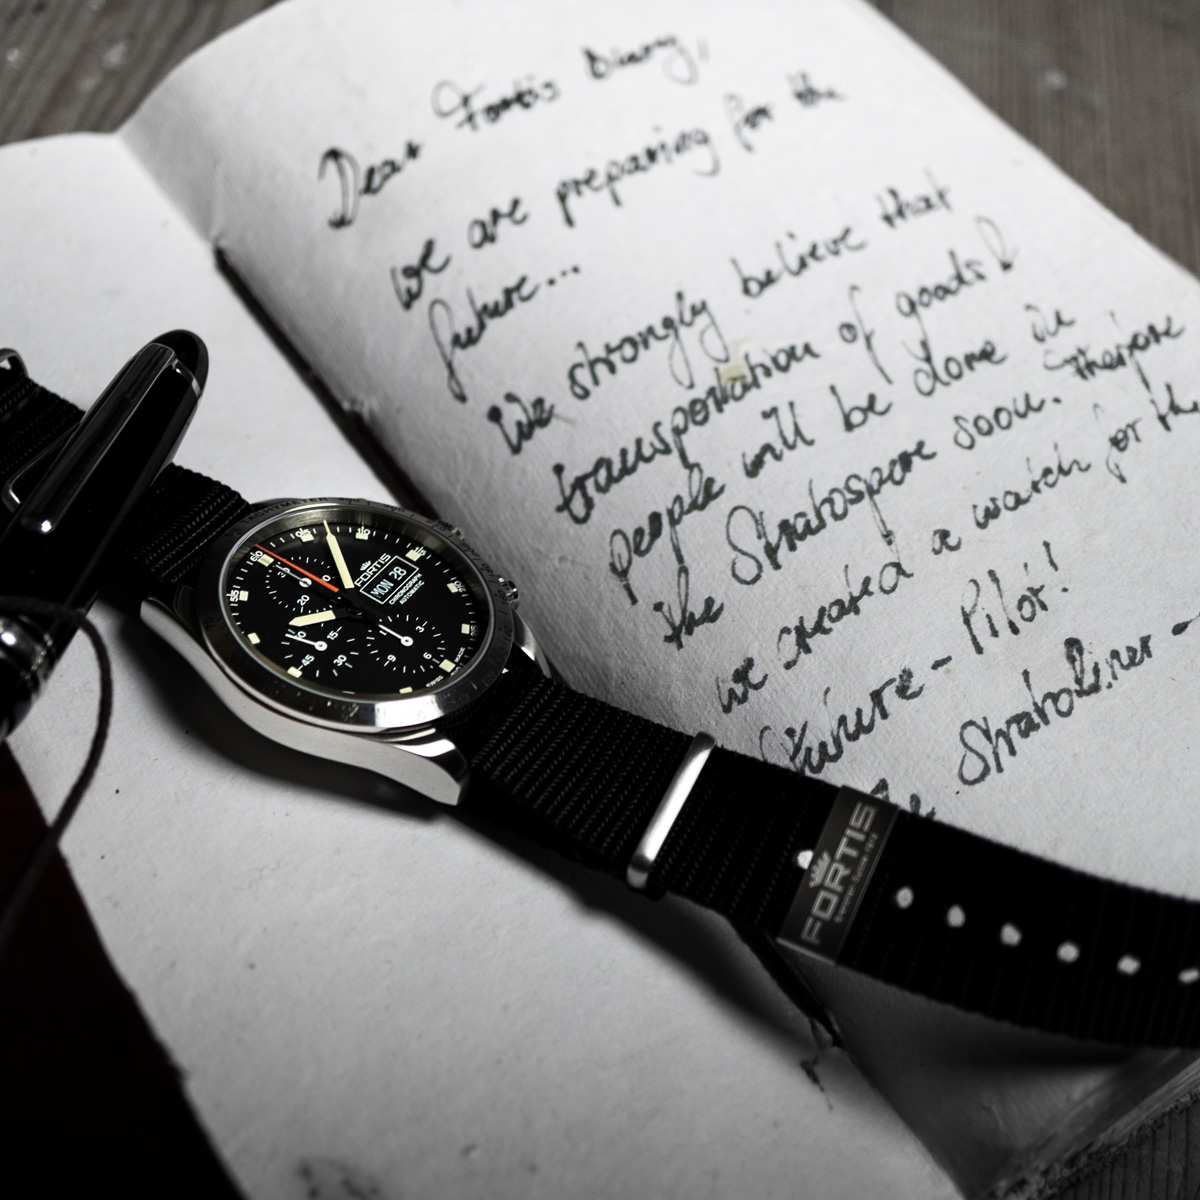 Dear Fortis Diary,
we are preparing for the
future...
We strongly believe that
transportation of goods &
people will be done in
the Stratospere soon. Therfore
we created a watch for the
future - Pilot!
Stratoliner -
60
05
10
55
30
20
FORTIS
MON 28
CHRONOGRAPH
AUTOMATIC
15
45
30
3
6
9
SWISS
MADE
FORTIS